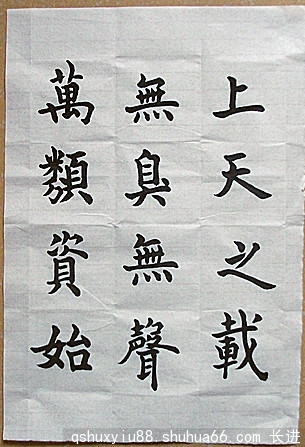 上天之載
無臭無聲
萬類資始
qshuxyiu88.shuhua66.com 长讲